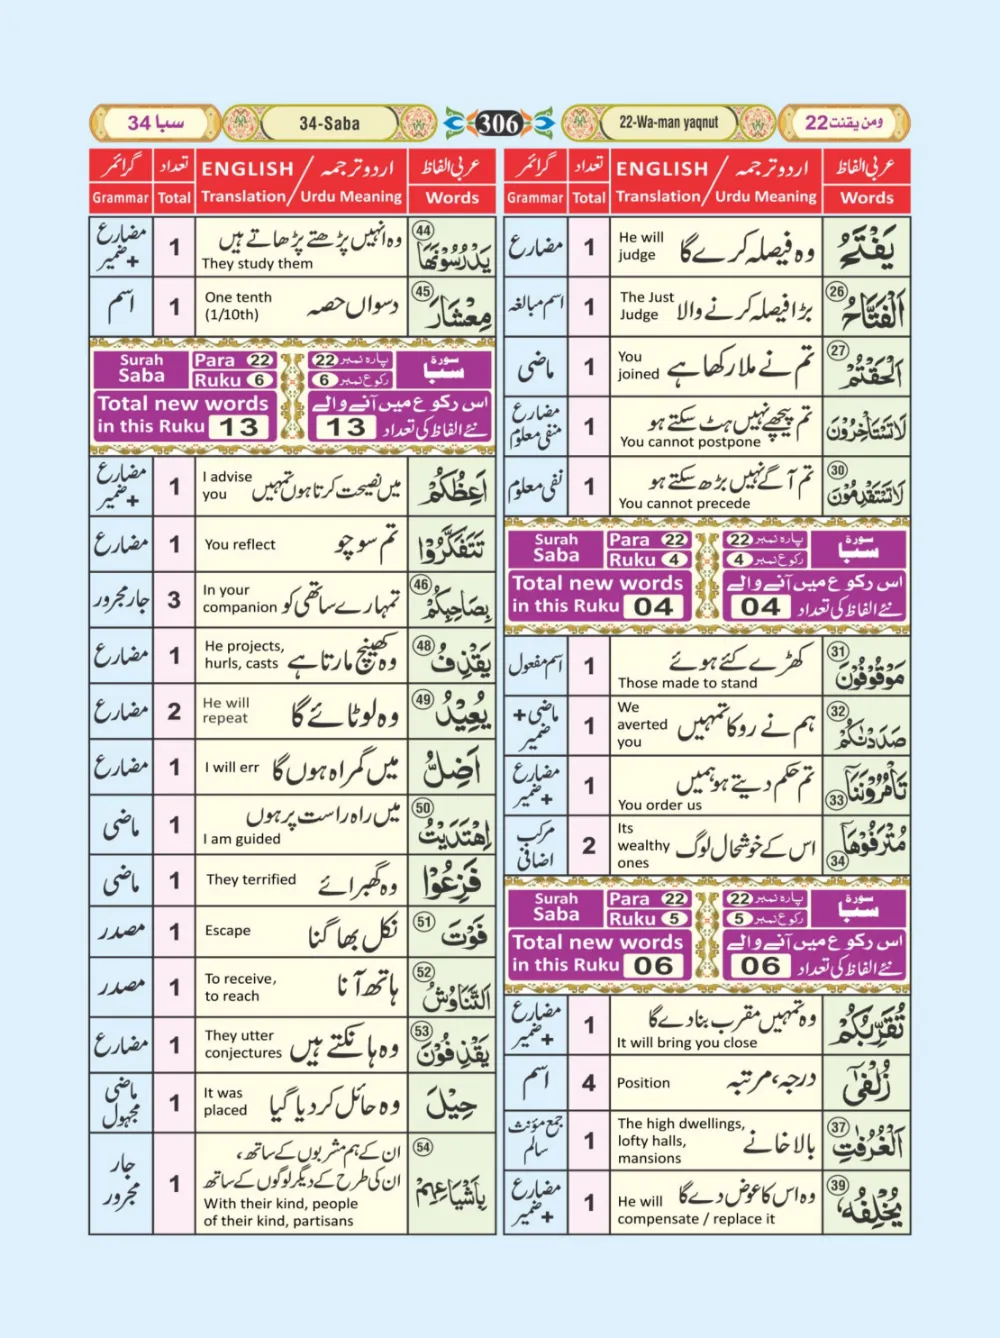 34 سبا
34-Saba
306
22-Wa-man yaqnut
ومن يقنت 22
عربی الفاظ
اردو ترجمہ / ENGLISH
تعداد
گرائمر
Words
Translation / Urdu Meaning
Total
Grammar
يَفْتَحُ
وہ فیصلہ کرے گا
He will
judge
1
مضارع
26
اَلْفَتَّاحُ
بڑا فیصلہ کرنے والا
The Just
Judge
1
اسم مبالغہ
27
اَلْحَقْتُمْ
تم نے ملا رکھا ہے
You
joined
1
ماضی
لَا تَسْتَاْخِرُوْنَ
تم پیچھے نہیں ہٹ سکتے ہو
You cannot postpone
1
مضارع
منفی معلوم
30
لَا تَسْتَقْدِمُوْنَ
تم آگے نہیں بڑھ سکتے ہو
You cannot precede
1
نفی معلوم
Surah
Saba
Para 22
Ruku 4
22 پارہ نمبر
4 رکوع نمبر
سورۃ
سبا
Total new words
in this Ruku 04
اس رکوع میں آنے والے
نئے الفاظ کی تعداد 04
31
مَوْقُوْفُوْنَ
کھڑے کئے ہوئے
Those made to stand
1
اسم مفعول
32
صَدَدْنٰكُمْ
ہم نے روکا تمہیں
We
averted
you
1
ماضی +
ضمیر
33
تَاْمُرُوْنَنَا
تم حکم دیتے ہو ہمیں
You order us
1
مضارع
+ ضمیر
34
مُتْرَفُوْهَا
اس کے خوشحال لوگ
Its
wealthy
ones
2
مرکب
اضافی
Surah
Saba
Para 22
Ruku 5
22 پارہ نمبر
5 رکوع نمبر
سورۃ
سبا
Total new words
in this Ruku 06
اس رکوع میں آنے والے
نئے الفاظ کی تعداد 06
تُقَرِّبُكُمْ
وہ تمہیں مقرب بنا دے گا
It will bring you close
1
مضارع
+ ضمیر
زُلْفٰى
درجہ، مرتبہ
Position
4
اسم
37
اَلْغُرُفٰتِ
بالا خانے
The high dwellings,
lofty halls,
mansions
1
جمع مؤنث
سالم
39
يُخْلِفُهٗ
وہ اس کا عوض دے گا
He will
compensate / replace it
1
مضارع
+ ضمیر
عربی الفاظ
اردو ترجمہ / ENGLISH
تعداد
گرائمر
Words
Translation / Urdu Meaning
Total
Grammar
44
يَدْرُسُوْنَهَا
وہ انہیں پڑھتے پڑھاتے ہیں
They study them
1
مضارع
+ ضمیر
45
مِعْشَارَ
دسواں حصہ
One tenth
(1/10th)
1
اسم
Surah
Saba
Para 22
Ruku 6
22 پارہ نمبر
6 رکوع نمبر
سورۃ
سبا
Total new words
in this Ruku 13
اس رکوع میں آنے والے
نئے الفاظ کی تعداد 13
اَعِظُكُمْ
میں نصیحت کرتا ہوں تمہیں
I advise
you
1
مضارع
+ ضمیر
تَتَفَكَّرُوْا
تم سوچو
You reflect
1
مضارع
46
بِصَاحِبِكُمْ
تمہارے ساتھی کو
In your
companion
3
جار مجرور
48
يَقْذِفُ
وہ کھینچ مارتا ہے
He projects,
hurls, casts
1
مضارع
49
يُعِيْدُ
وہ لوٹائے گا
He will
repeat
2
مضارع
اَضِلُّ
میں گمراہ ہوں گا
I will err
1
مضارع
50
اِهْتَدَيْتُ
میں راہ راست پر ہوں
I am guided
1
ماضی
فَزِعُوْا
وہ گھبرائے
They terrified
1
ماضی
51
فَوْتَ
نکل بھاگنا
Escape
1
مصدر
52
اَلتَّنَاوُشُ
ہاتھ آنا
To receive,
to reach
1
مصدر
53
يَقْذِفُوْنَ
وہ ہانکتے ہیں
They utter
conjectures
1
مضارع
حِيْلَ
وہ حائل کر دیا گیا
It was
placed
1
ماضی
مجہول
54
بِاَشْيَاعِهِمْ
ان کے ہم مشربوں کے ساتھ،
ان کی طرح کے دیگر لوگوں کے ساتھ
With their kind, people
of their kind, partisans
1
جار
مجرور